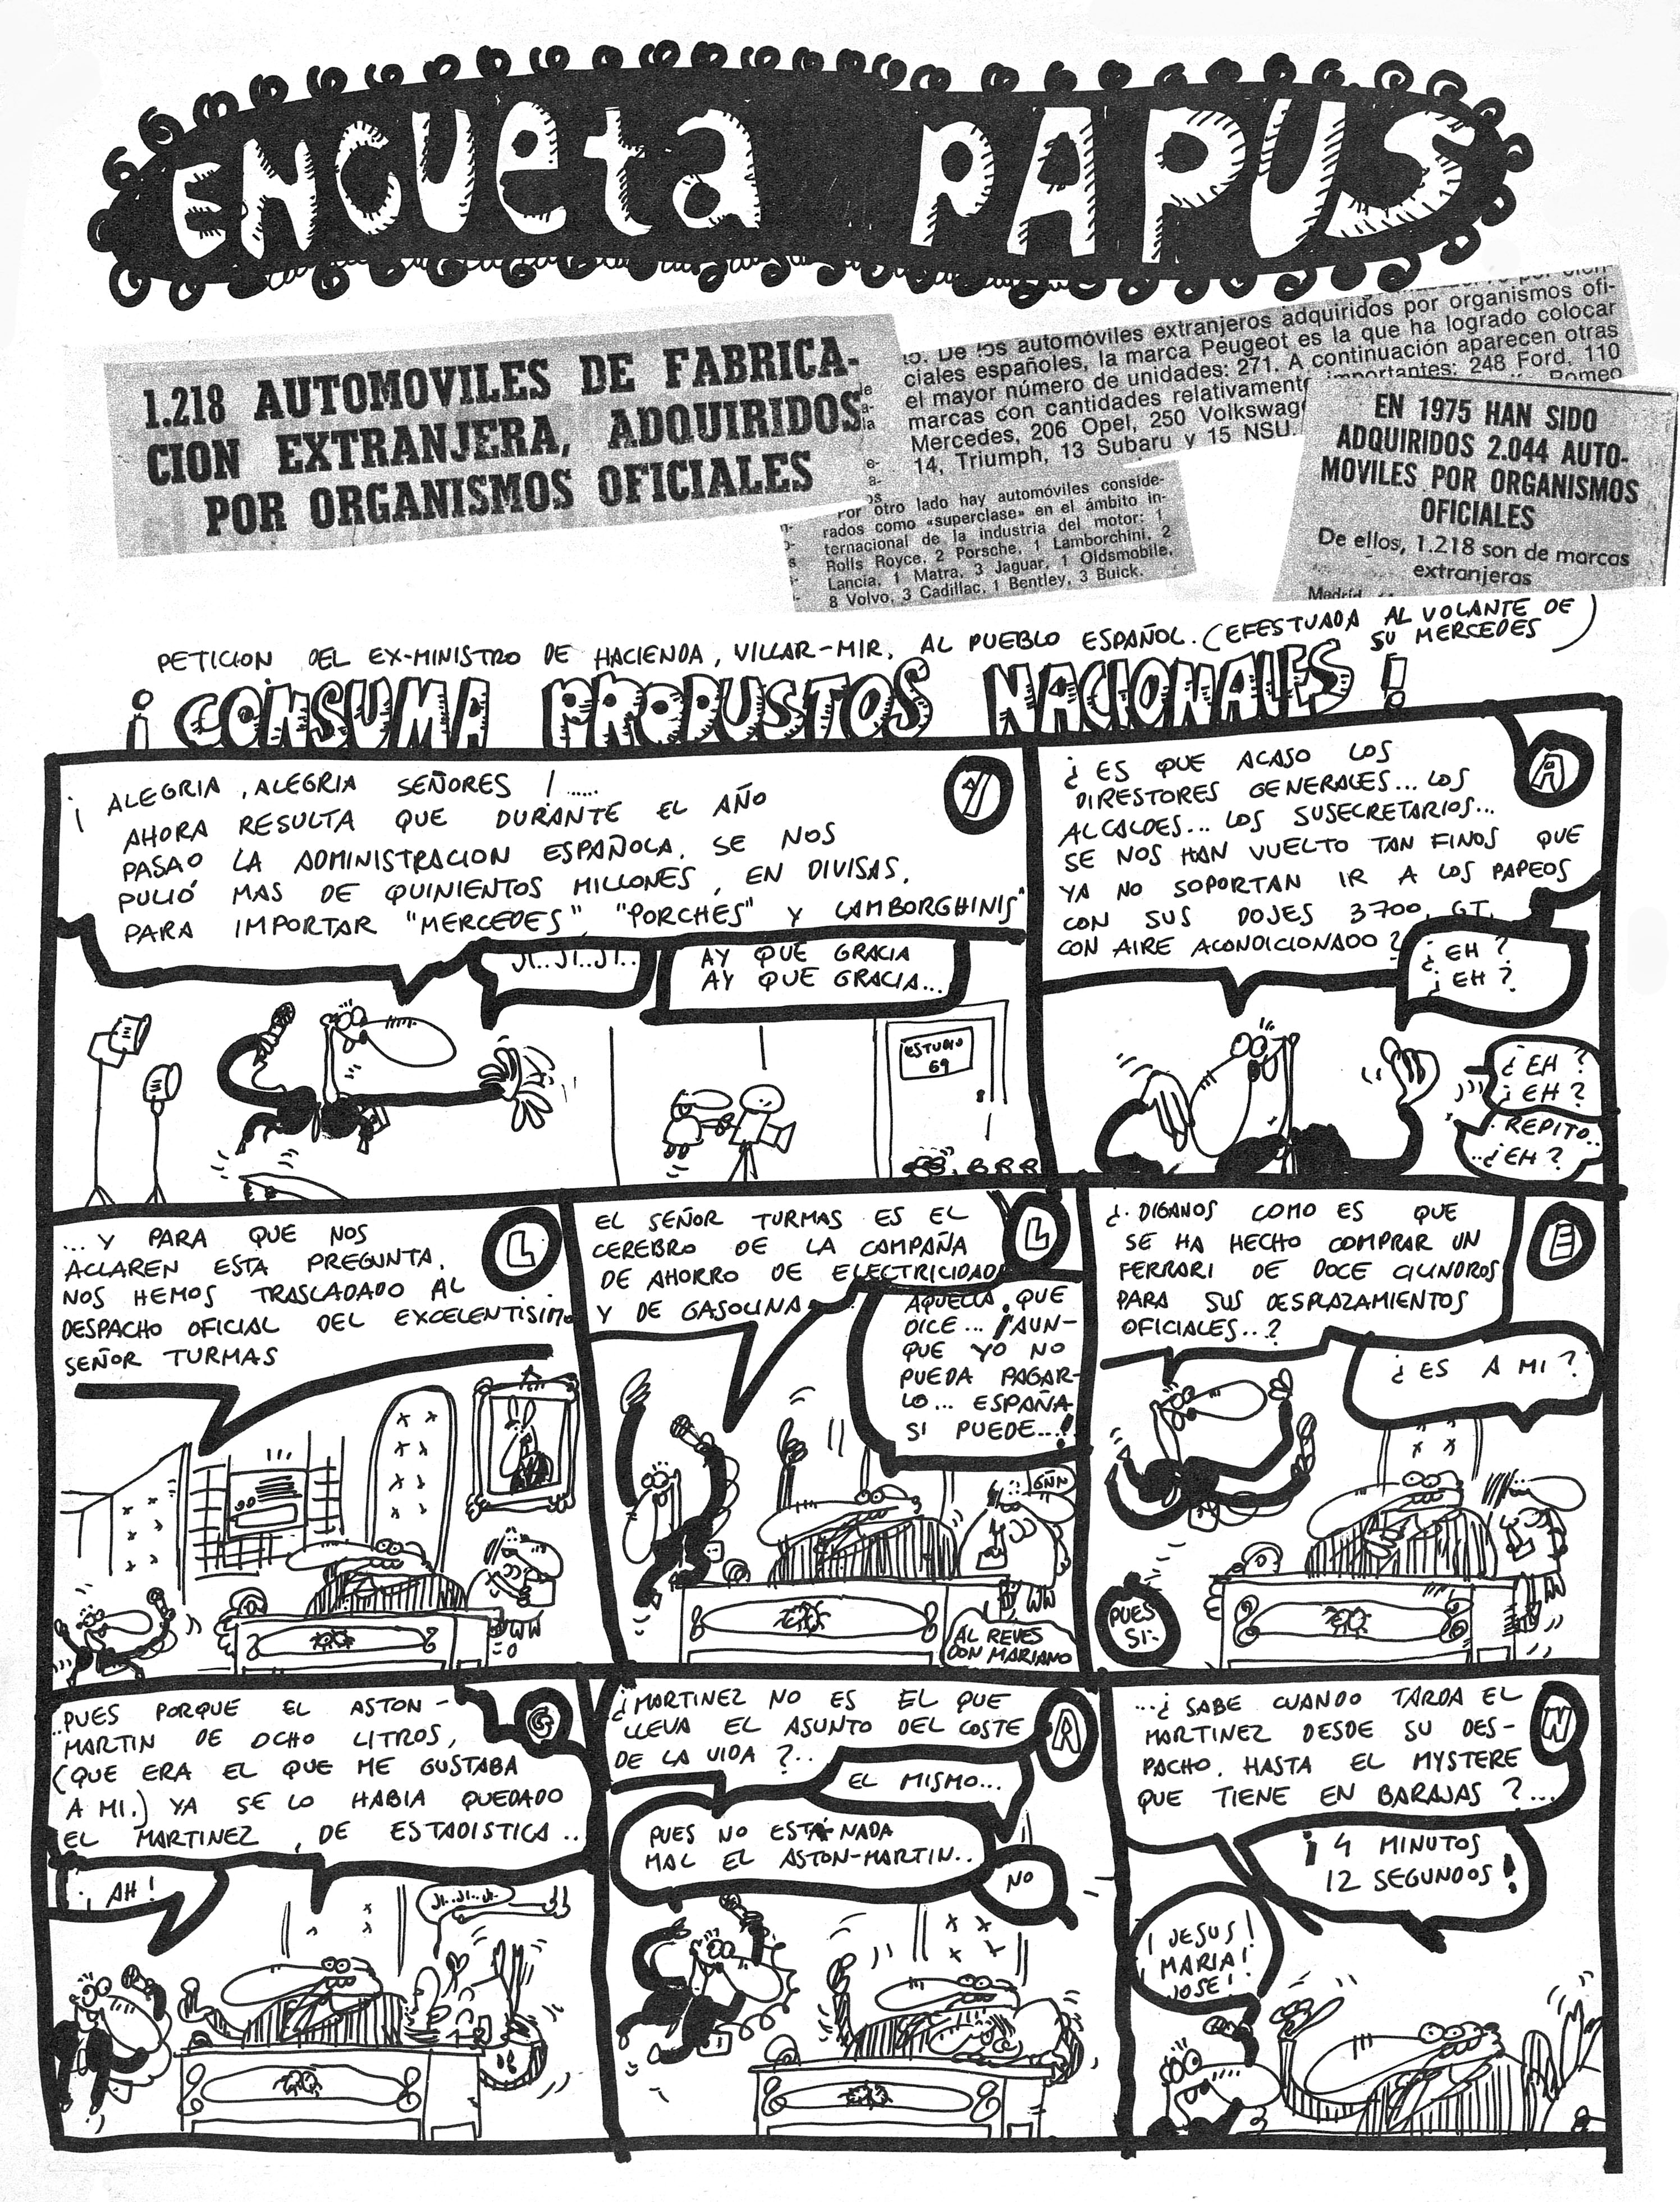 ENCUETA PAPUS
1.218 AUTOMOVILES DE FABRICA-
CION EXTRANJERA, ADQUIRIDOS
POR ORGANISMOS OFICIALES
De los automóviles extranjeros adquiridos por organismos ofi-
ciales españoles, la marca Peugeot es la que ha logrado colocar
el mayor número de unidades: 271. A continuación aparecen otras
marcas con cantidades relativamente importantes: 248 Ford, 110
Mercedes, 206 Opel, 250 Romeo
14, Triumph, 13 Subaru y 15 NSU.
Por otro lado hay automóviles conside-
rados como «superclase» en el ámbito in-
ternacional de la industria del motor: 1
Rolls Royce, 2 Porsche, 1 Lamborchini, 2
Lancia, 1 Matra, 3 Jaguar, 1 Oldsmobile,
8 Volvo, 3 Cadillac, 1 Bentley, 3 Buick.
EN 1975 HAN SIDO
ADQUIRIDOS 2.044 AUTO-
MOVILES POR ORGANISMOS
OFICIALES
De ellos, 1.218 son de marcas
extranjeras
Madrid
PETICION DEL EX-MINISTRO DE HACIENDA, VILLAR-MIR, AL PUEBLO ESPAÑOL. (EFESTUADA AL VOLANTE DE
SU MERCEDES)
¡CONSUMA PRODUSTOS NACIONALES!
¡ALEGRIA, ALEGRIA SEÑORES!......
AHORA RESULTA QUE DURANTE EL AÑO
PASAO LA ADMINISTRACION ESPAÑOLA, SE NOS
PULIÓ MAS DE QUINIENTOS MILLONES, EN DIVISAS,
PARA IMPORTAR "MERCEDES", "PORCHES" Y LAMBORGHINIS"
JI..JI..JI..
AY QUE GRACIA
AY QUE GRACIA...
ESTUDIO
69
¿ES QUE ACASO LOS
DIRESTORES GENERALES... LOS
ALCALDES... LOS SUSECRETARIOS...
SE NOS HAN VUELTO TAN FINOS QUE
YA NO SOPORTAN IR A LOS PAPEOS
CON SUS DOJES 3700, GT,
CON AIRE ACONDICIONADO?
A
¿EH?
¿EH?
¿EH?
¿EH?
REPITO..
..¿EH?
...Y PARA QUE NOS
ACLAREN ESTA PREGUNTA,
NOS HEMOS TRASLADADO AL
DESPACHO OFICIAL DEL EXCELENTISIMO
SEÑOR TURMAS
L
EL SEÑOR TURMAS ES EL
CEREBRO DE LA CAMPAÑA
DE AHORRO DE ELECTRICIDAD
Y DE GASOLINA
L
AQUELLA, QUE
DICE... ¡AUN-
QUE YO NO
PUEDA PAGAR-
LO... ESPAÑA
SI PUEDE...!
GÑÑ
AL REVES
DON MARIANO
¿DIGANOS COMO ES QUE
SE HA HECHO COMPRAR UN
FERRARI DE DOCE CILINDROS
PARA SUS DESPLAZAMIENTOS
OFICIALES..?
E
¿ES A MI?
PUES
SI-
..PUES PORQUE EL ASTON-
MARTIN DE OCHO LITROS,
(QUE ERA EL QUE ME GUSTABA
A MI.) YA SE LO HABIA QUEDADO
EL MARTINEZ, DE ESTADISTICA..
G
¡AH!
JI..JI..JI-
¿MARTINEZ NO ES EL QUE
LLEVA EL ASUNTO DEL COSTE
DE LA VIDA?..
R
EL MISMO...
PUES NO ESTÁ NADA
MAL EL ASTON-MARTIN..
NO
...¿SABE CUANDO TARDA EL
MARTINEZ DESDE SU DES-
PACHO, HASTA EL MYSTERE
QUE TIENE EN BARAJAS?...
N
¡4 MINUTOS
12 SEGUNDOS!
¡JESUS!
¡MARIA!
¡JOSE!